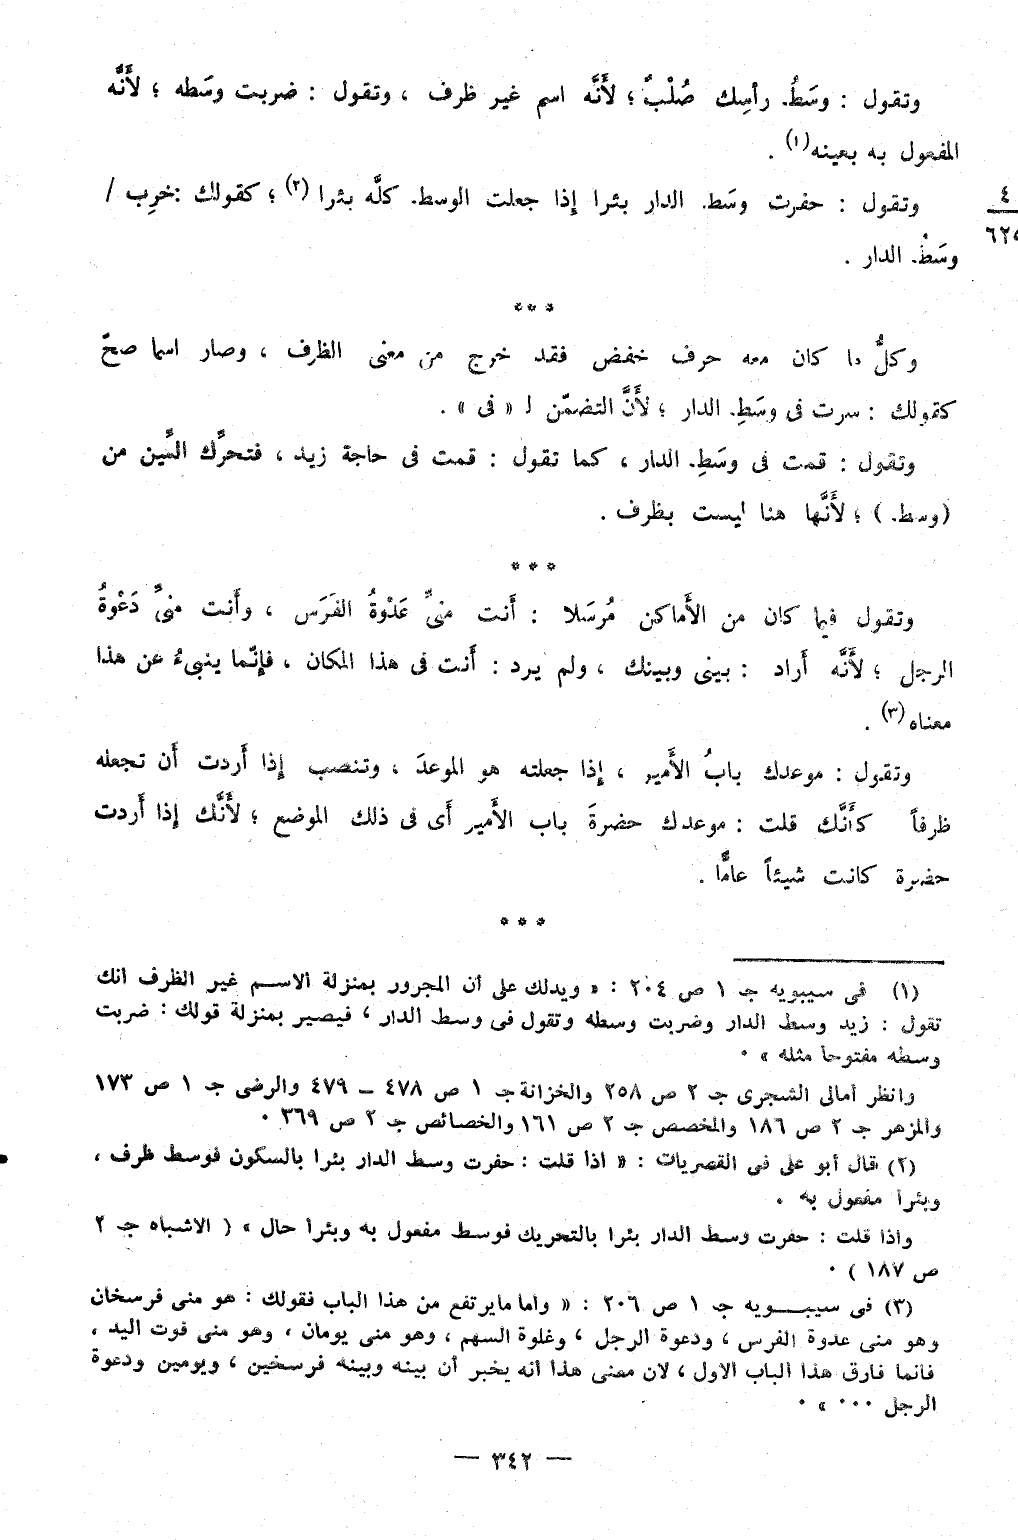 وتقول : وسَطُ رأسِك صُلْبٌ ؛ لأَنَّه اسم غير ظرف ، وتقول : ضربت وسَطه ؛ لأَنَّه
المفعول به بعينه(١) .
وتقول : حفرت وسَط الدار بئرا إِذا جعلت الوسط كلَّه بئرا (٢) ؛ كقولك : خرِب /
٤
٦٢٥
وسَطُ الدار .
* * *
وكلُّ ما كان معه حرف خفض فقد خرج من معنى الظرف ، وصار اسما صحّ
كقولك : سرت فى وسَطِ الدار ؛ لأَنَّ التضمّن لـ « فى » .
وتقول : قمت فى وسَطِ الدار ، كما تقول : قمت فى حاجة زيد ، فتحرِّك السِّين من
(وسط ) ؛ لأَنَّها هنا ليست بظرف .
* * *
وتقول فيما كان من الأَماكن مُرسَلا : أَنت منىِّ عَدْوةُ الفَرَس ، وأَنت منىِّ دَعْوةُ
الرجل ؛ لأَنَّه أَراد : بينى وبينك ، ولم يرد : أَنت فى هذا المكان ، فإِنَّما ينبىءُ عن هذا
معناه(٣) .
وتقول : موعدك بابُ الأَمير ، إِذا جعلته هو الموعدَ ، وتنصب إِذا أَردت أَن تجعله
ظرفاً كأَنَّك قلت : موعدك حضرةَ باب الأَمير أَى فى ذلك الموضع ؛ لأَنَّك إِذا أَردت
حضرة كانت شيئاً عامًّا .
* * *
(١) فى سيبويه جـ ١ ص ٢٠٤ : « ويدلك على أن المجرور بمنزلة الاسم غير الظرف انك
تقول : زيد وسط الدار وضربت وسطه وتقول فى وسط الدار ، فيصير بمنزلة قولك : ضربت
وسطه مفتوحا مثله » .
وانظر أمالى الشجرى جـ ٢ ص ٢٥٨ والخزانة جـ ١ ص ٤٧٨ – ٤٧٩ والرضى جـ ١ ص ١٧٣
والمزهر جـ ٢ ص ١٨٦ والمخصص جـ ٢ ص ١٦١ والخصائص جـ ٢ ص ٣٦٩ .
(٢) قال أبو على فى القصريات : « اذا قلت : حفرت وسط الدار بئرا بالسكون فوسط ظرف ،
وبئرا مفعول به .
واذا قلت : حفرت وسط الدار بئرا بالتحريك فوسط مفعول به وبئرا حال » ( الاشباه جـ ٢
ص ١٨٧ ) .
(٣) فى سيبويه جـ ١ ص ٢٠٦ : « واما ما يرتفع من هذا الباب فقولك : هو منى فرسخان
وهو منى عدوة الفرس ، ودعوة الرجل ، وغلوة السهم ، وهو منى يومان ، وهو منى فوت اليد ،
فانما فارق هذا الباب الاول ، لان معنى هذا أنه يخبر أن بينه وبينه فرسخين ، ويومين ودعوة
الرجل ٠٠٠ » .
— ٣٤٢ —